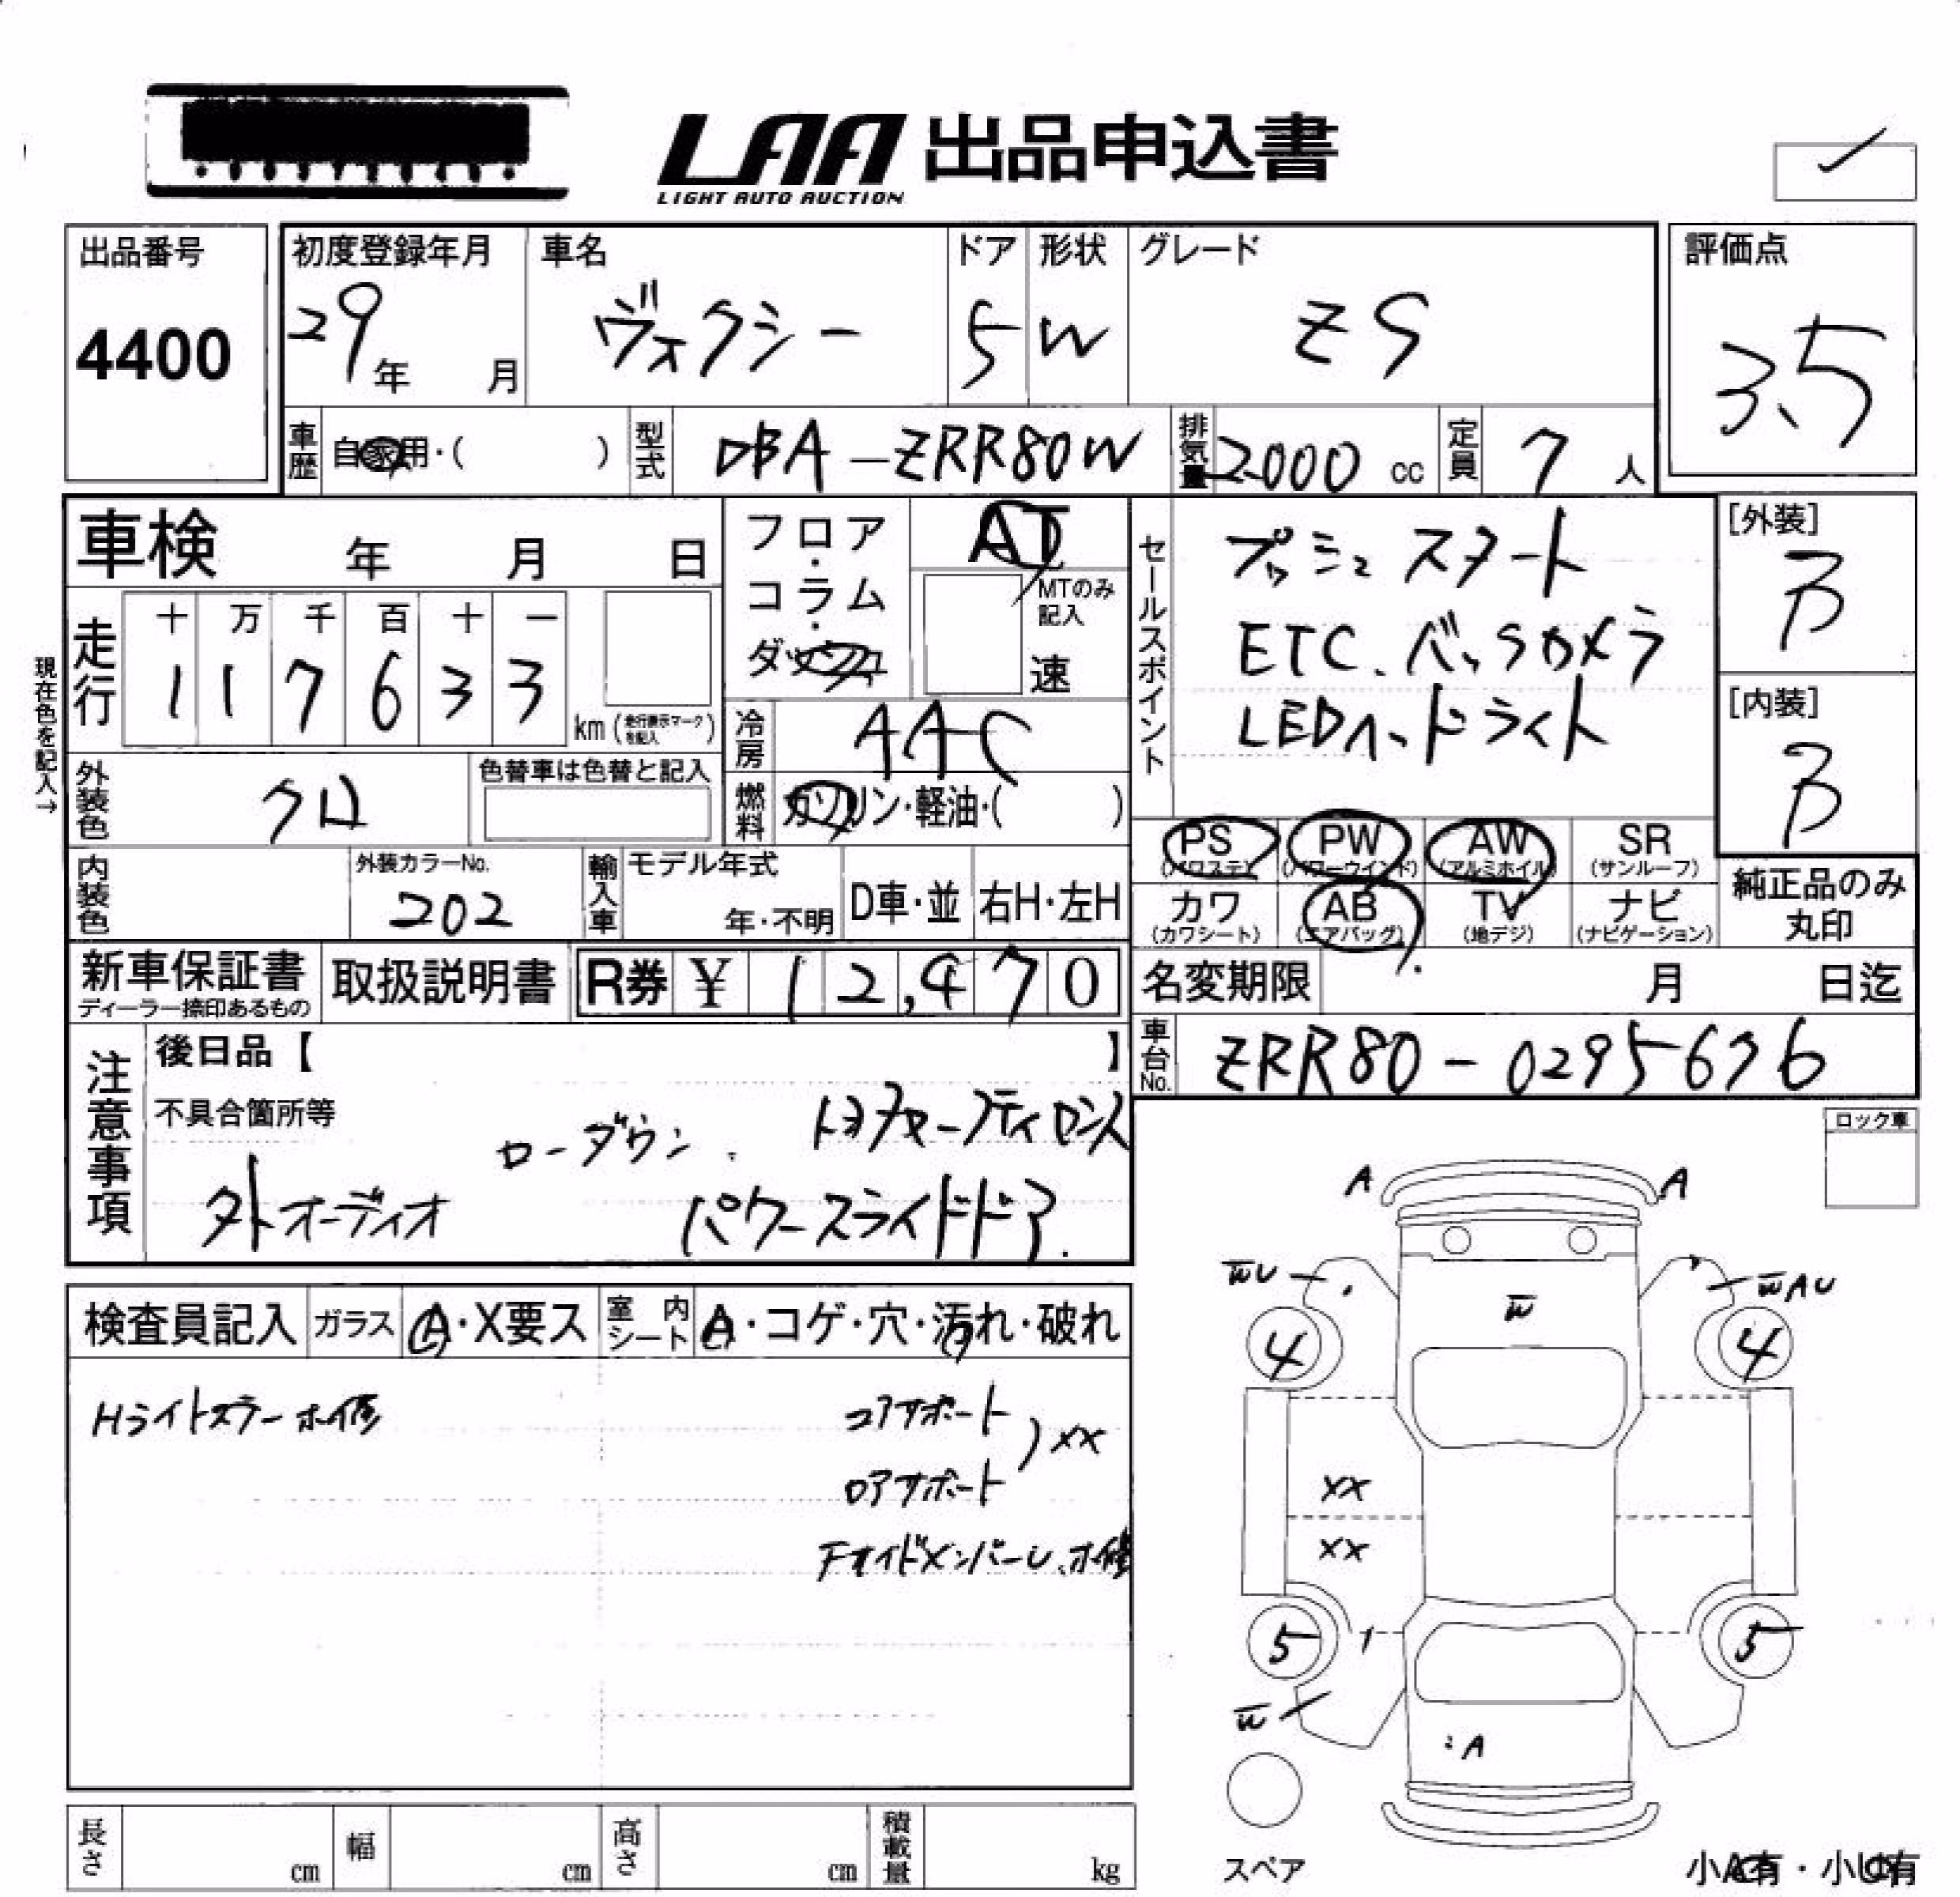 LAA 出品申込書
LIGHT AUTO AUCTION
出品番号
4400
初度登録年月
29年 月
車名
ヴォクシー
ドア
5
形状
W
グレード
ZS
評価点
3.5
車歴 自家用・( )
型式 DBA-ZRR80W
排気量 2000 cc
定員 7 人
車検 年 月 日
フロア・コラム・ダッシュ
AT
MTのみ記入
速
現在色を記入→
走行
十 万 千 百 十 一
1 1 7 6 3 3
km (走行表示マークを記入)
冷房 AAC
燃料 ガソリン・軽油・( )
外装色 クロ
色替車は色替と記入
内装色
外装カラーNo.
202
輸入車
モデル年式
年・不明
D車・並
右H・左H
セールスポイント
プッシュスタート
ETC、バックカメラ
LEDヘッドライト
[外装]
B
[内装]
B
PS (パワステ)
PW (パワーウインド)
AW (アルミホイル)
SR (サンルーフ)
カワ (カワシート)
AB (エアバッグ)
TV (地デジ)
ナビ (ナビゲーション)
純正品のみ丸印
新車保証書
ディーラー捺印あるもの
取扱説明書
R券 ¥ 12,470
名変期限 月 日迄
車台No. ZRR80-0295676
注意事項
後日品【 】
不具合箇所等
ローダウン
トヨタセーフティセンス
外オーディオ
パワースライドドア
ロック車
検査員記入
ガラス A・X要ス
室内シート A・コゲ・穴・汚れ・破れ
コアサポート
ロアサポート
XX
A A
WU W WAU
4 4
XX
XX
5 5
W
A
スペア
小A有・小U有
長さ cm
幅 cm
高さ cm
積載量 kg